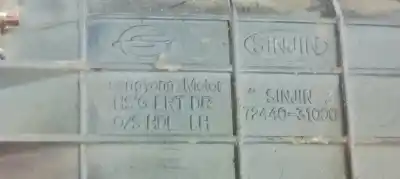 SINJIN
Ssangyong Motor
HS'G FRT DR
O/S HDL LH
SINJIN
72440-31000